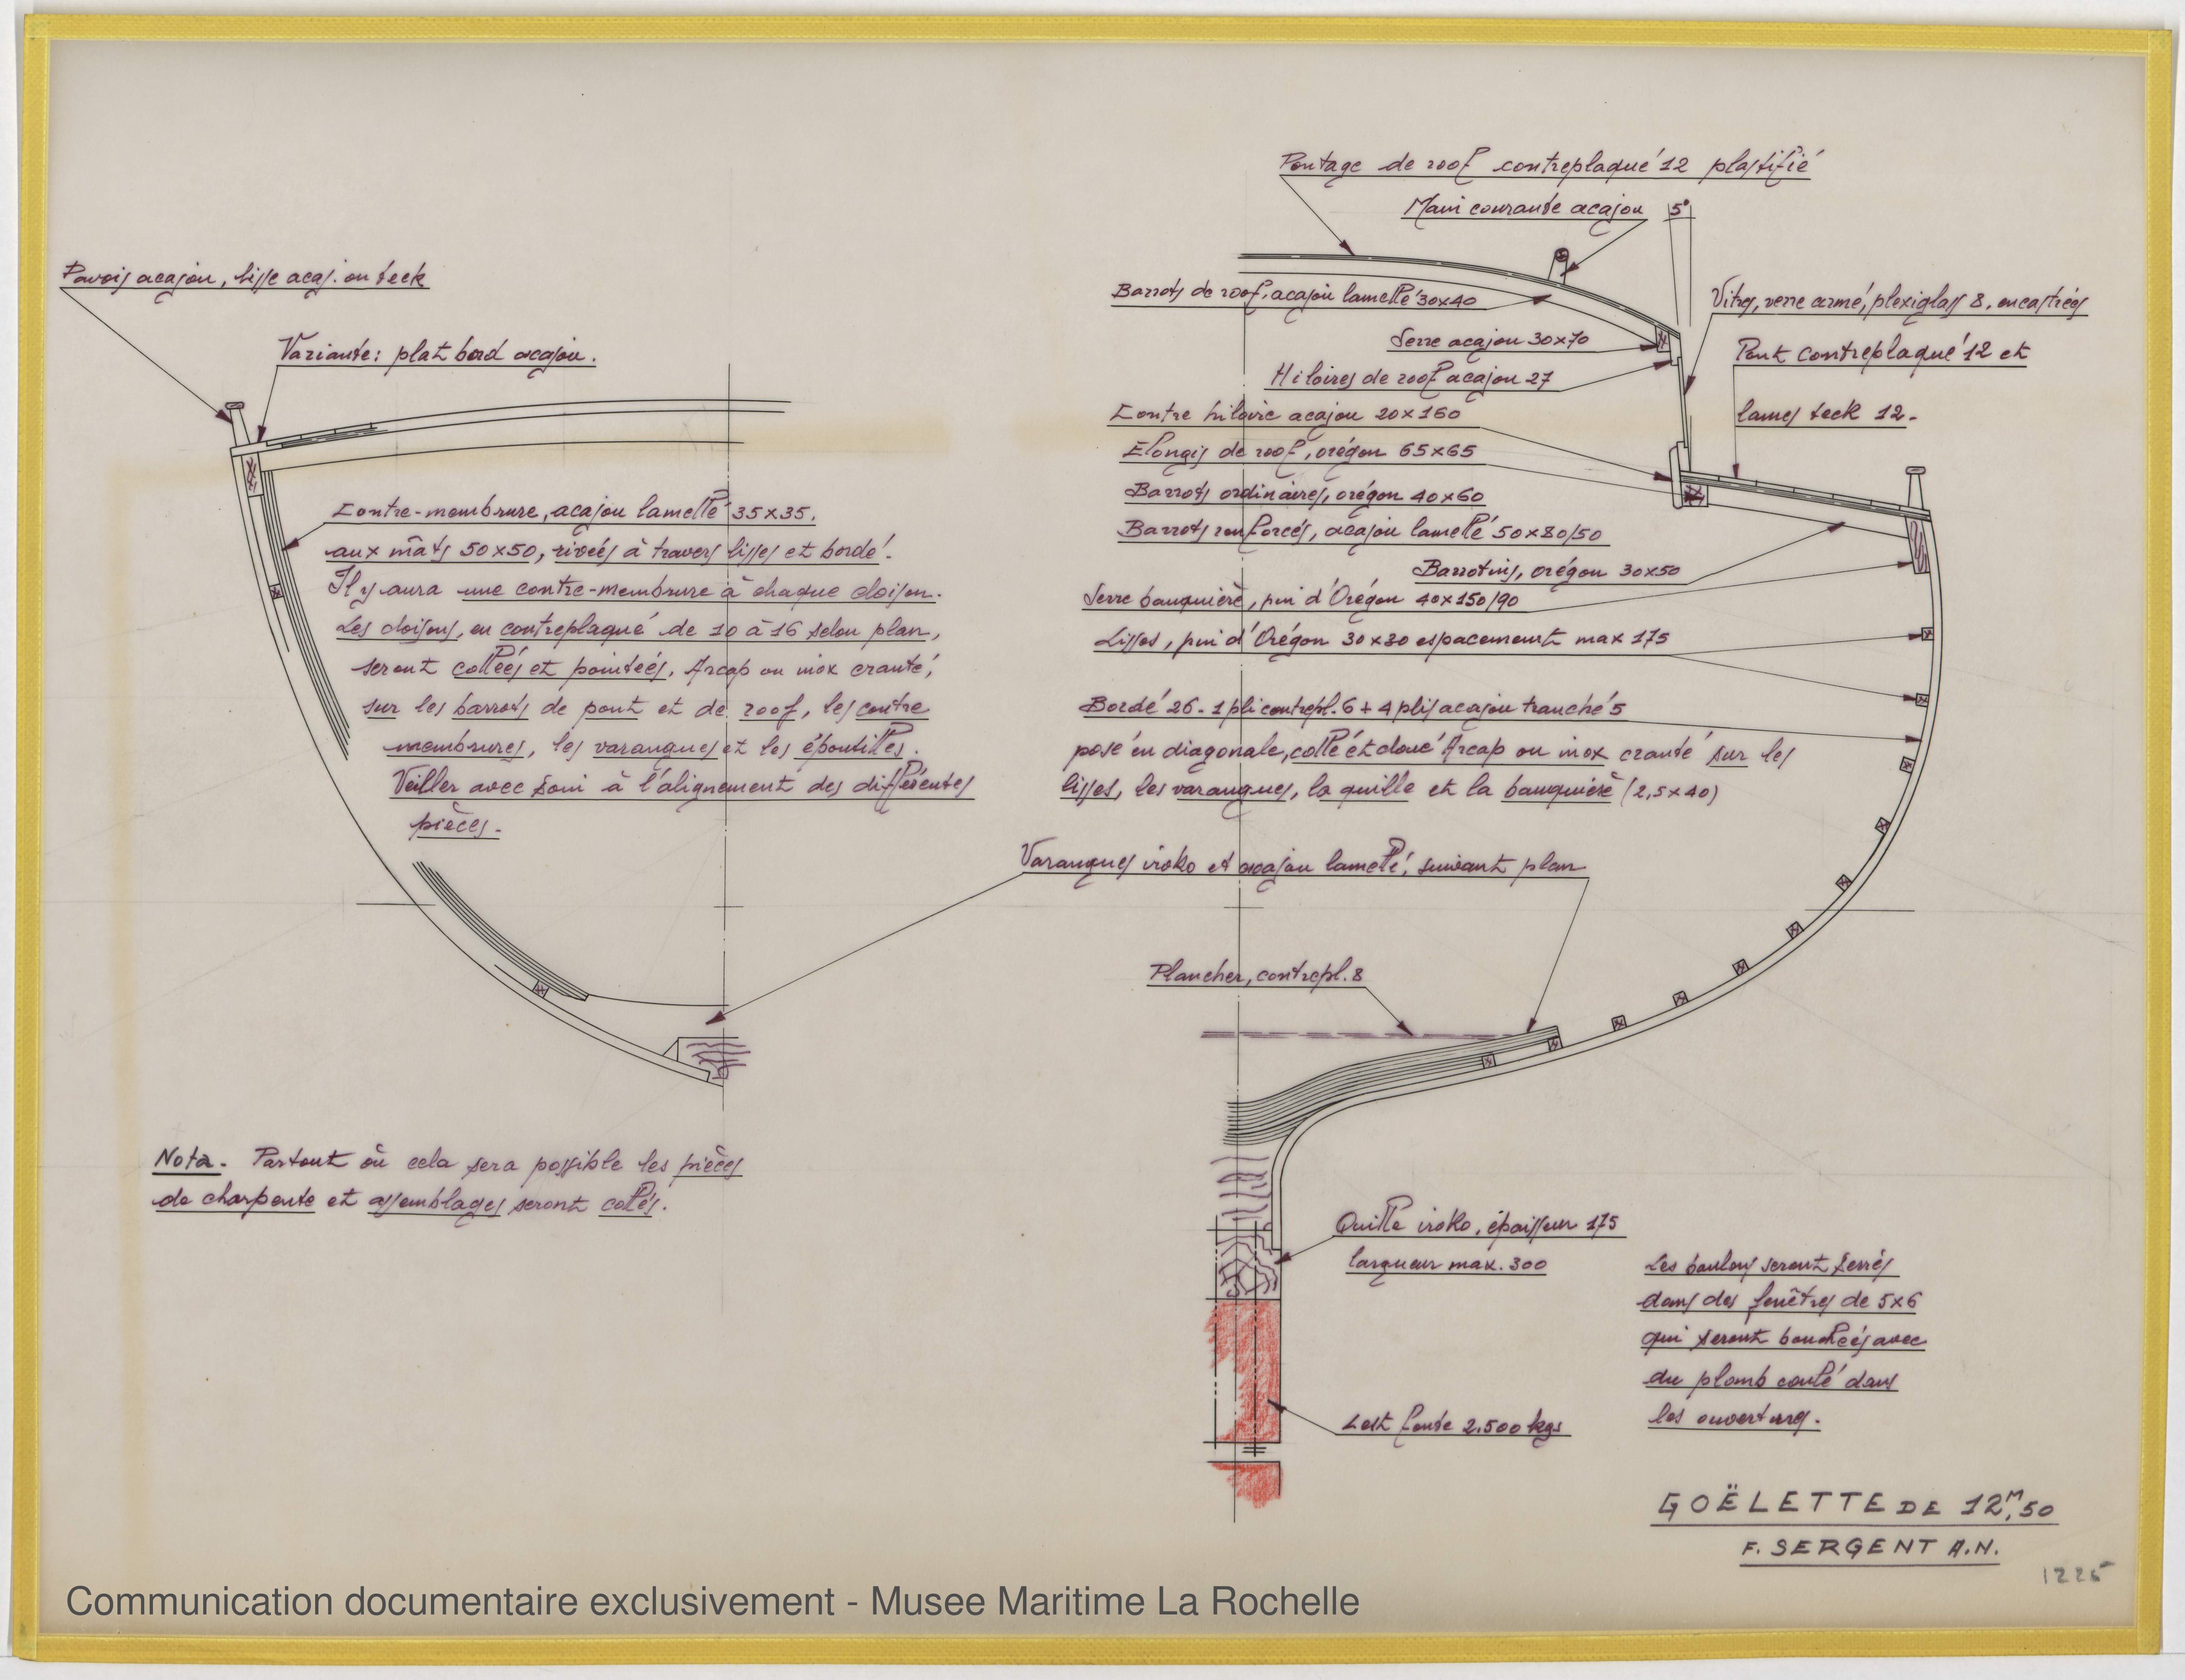 Pavois acajou, lisse acaj. ou teck
Variante: plat bord acajou.
Contre-membrure, acajou lamellé 35x35.
aux mâts 50x50, rivées à travers lisses et bordé.
Il y aura une contre-membrure à chaque cloison.
Les cloisons, en contreplaqué de 10 à 16 selon plan,
seront collées et pointées, Arcap ou inox cranté,
sur les barrots de pont et de roof, les contre
membrures, les varangues et les épontilles.
Veiller avec soin à l'alignement des différentes
pièces.
Nota. Partout où cela sera possible les pièces
de charpente et assemblages seront collés.
Pontage de roof contreplaqué 12 plastifié
Main courante acajou
5°
Barrots de roof, acajou lamellé 30x40
Serre acajou 30x70
Hiloires de roof acajou 27
Contre hiloire acajou 20x160
Elongis de roof, orégon 65x65
Barrots ordinaires, orégon 40x60
Barrots renforcés, acajou lamellé 50x80/50
Barrotins, orégon 30x50
Serre bauquière, pin d'Orégon 40x150/90
Lisses, pin d'Orégon 30x30 espacement max 175
Bordé 26. 1 pli contrepl. 6 + 4 plis acajou tranché 5
posé en diagonale, collé et cloué Arcap ou inox cranté sur les
lisses, les varangues, la quille et la bauquière (2,5x40)
Vitres, verre armé, plexiglass 8. encastrées
Pont contreplaqué 12 et
lames teck 12.
Varangues iroko et acajou lamellé, suivant plan
Plancher, contrepl. 8
Quille iroko, épaisseur 175
largueur max. 300
Lest fonte 2.500 kgs
Les boulons seront serrés
dans des fenêtres de 5x6
qui seront bouchées avec
du plomb coulé dans
les ouvertures.
GOËLETTE DE 12M,50
F. SERGENT A.N.
1225
Communication documentaire exclusivement - Musee Maritime La Rochelle